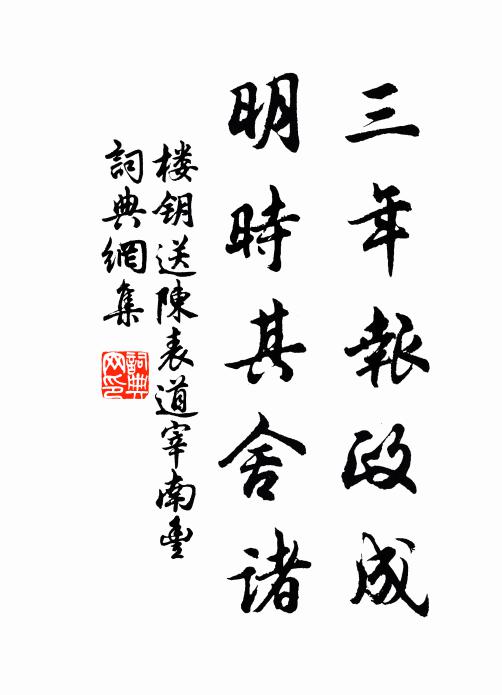 三年報政成
明時其舍诸
楼钥送陳表道宰南豐
詞典網集
詞典網印